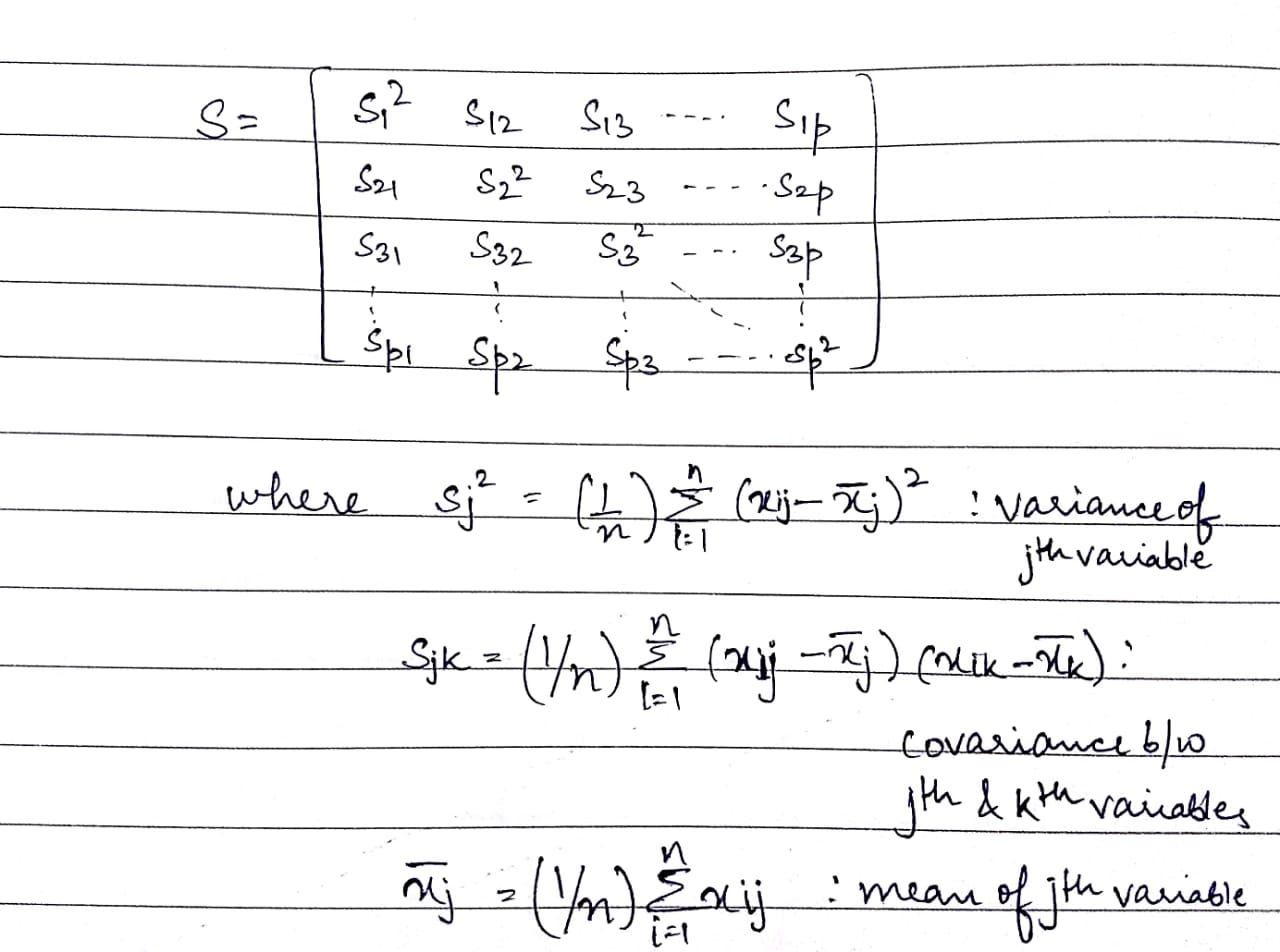 S = [ S₁² S₁₂ S₁₃ ---- S₁p
S₂₁ S₂² S₂₃ ---- S₂p
S₃₁ S₃₂ S₃² ---- S₃p
⋮ ⋮ ⋮ ⋱ ⋮
Sp₁ Sp₂ Sp₃ ---- Sp² ]
where Sj² = (1/n) Σⁿᵢ₌₁ (xij − x̄j)² : variance of
jth variable
Sjk = (1/n) Σⁿᵢ₌₁ (xij − x̄j) (xik − x̄k) :
covariance b/w
jth & kth variables
x̄j = (1/n) Σⁿᵢ₌₁ xij : mean of jth variable